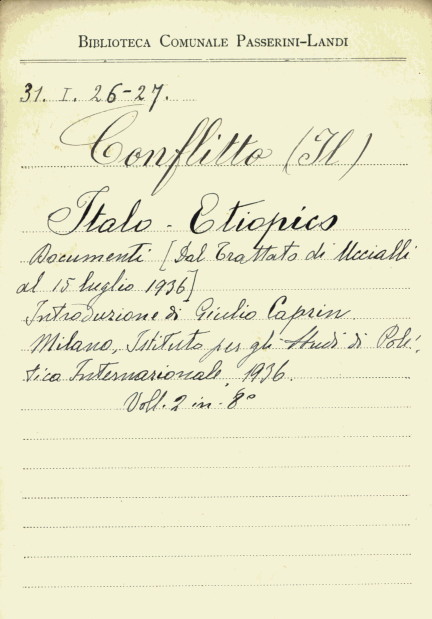 BIBLIOTECA COMUNALE PASSERINI-LANDI
31. I. 26-27.
Conflitto (Il)
Italo - Etiopico
Documenti [Dal Trattato di Uccialli
al 15 luglio 1936]
Introduzione di Giulio Caprin.
Milano, Istituto per gli Studi di Poli-
tica Internazionale, 1936.
Voll. 2 in-8°